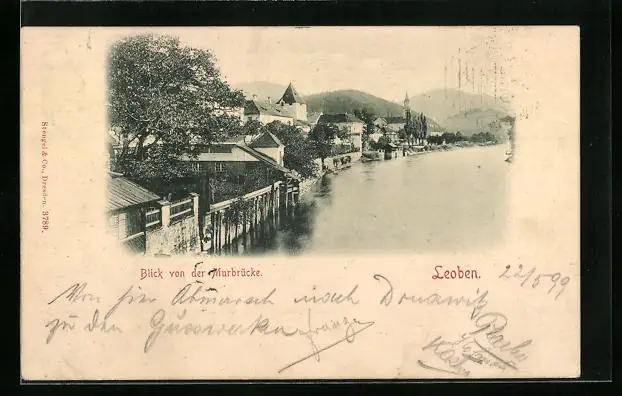 Stengel & Co., Dresden. 3789.
Blick von der Murbrücke.
Leoben.
22/5 99
Von hier Abmarsch nach Donawitz
zu den Gusswerken